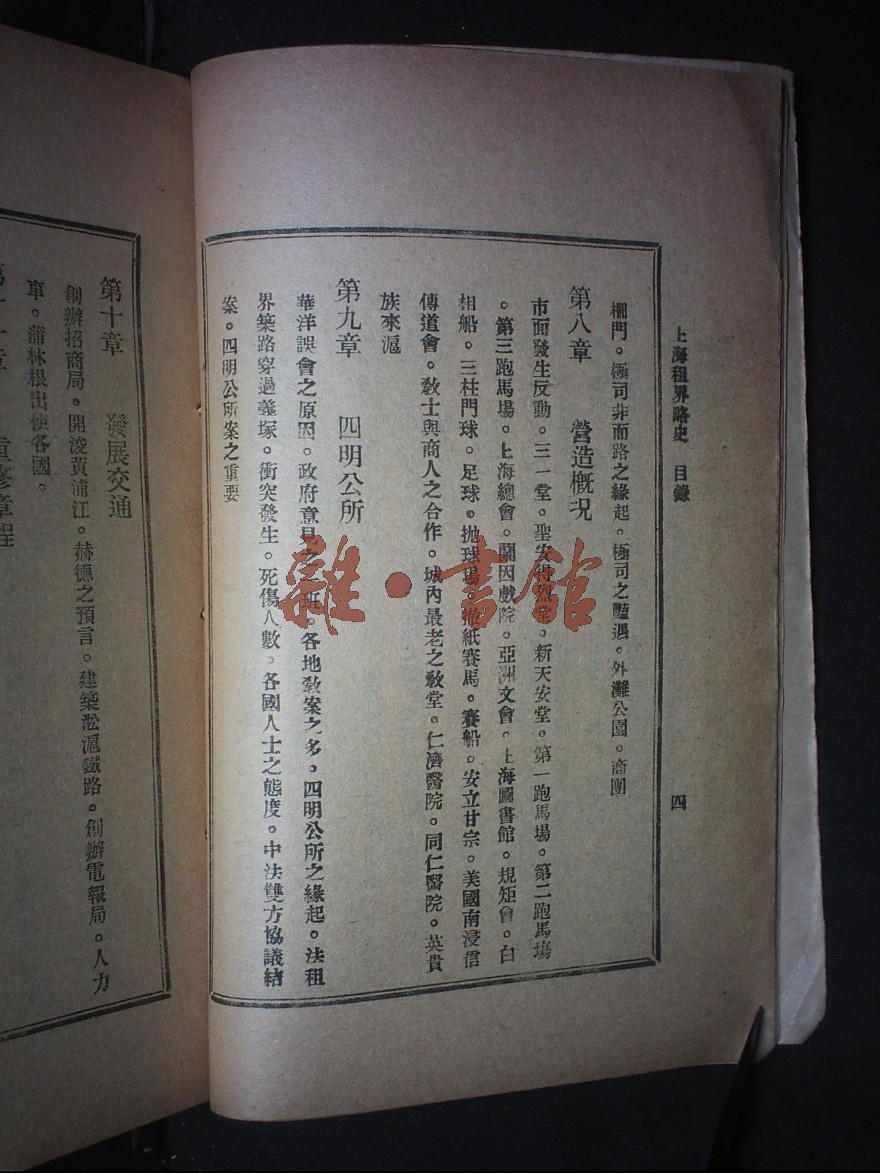 上海租界略史　目錄
四
柵門。極司非而路之緣起。極司之豔遇。外灘公園。商團
第八章　營造概況
市面發生反動。三一堂。聖安得烈堂。新天安堂。第一跑馬場。第二跑馬場
。第三跑馬場。上海總會。蘭因戲院。亞洲文會。上海圖書館。規矩會。白
相船。三柱門球。足球。拋球場。撒紙賽馬。賽船。安立甘宗。美國南浸信
傳道會。敎士與商人之合作。城內最老之敎堂。仁濟醫院。同仁醫院。英貴
族來滬
第九章　四明公所
華洋誤會之原因。政府意見之一班。各地敎案之多。四明公所之緣起。法租
界築路穿過義塚。衝突發生。死傷人數。各國人士之態度。中法雙方協議結
案。四明公所案之重要
第十章　發展交通
創辦招商局。開浚黃浦江。赫德之預言。建築淞滬鐵路。創辦電報局。人力
車。蒲林根出使各國。
第十一章　重修章程
雜·書館